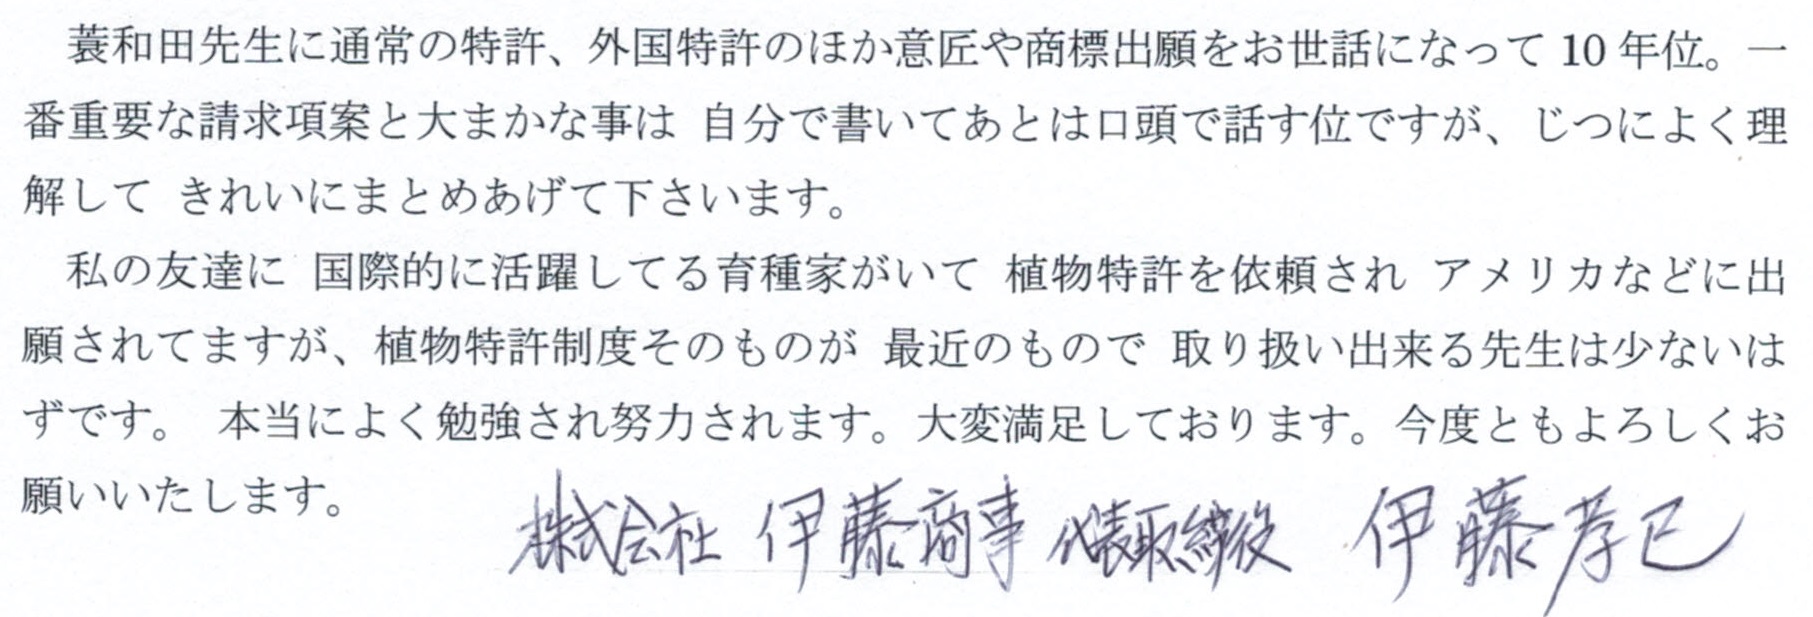 蓑和田先生に通常の特許、外国特許のほか意匠や商標出願をお世話になって 10 年位。一
番重要な請求項案と大まかな事は 自分で書いてあとは口頭で話す位ですが、じつによく理
解して きれいにまとめあげて下さいます。
私の友達に 国際的に活躍してる育種家がいて 植物特許を依頼され アメリカなどに出
願されてますが、植物特許制度そのものが 最近のもので 取り扱い出来る先生は少ないは
ずです。 本当によく勉強され努力されます。大変満足しております。今度ともよろしくお
願いいたします。
株式会社 伊藤商事 代表取締役 伊藤孝巳